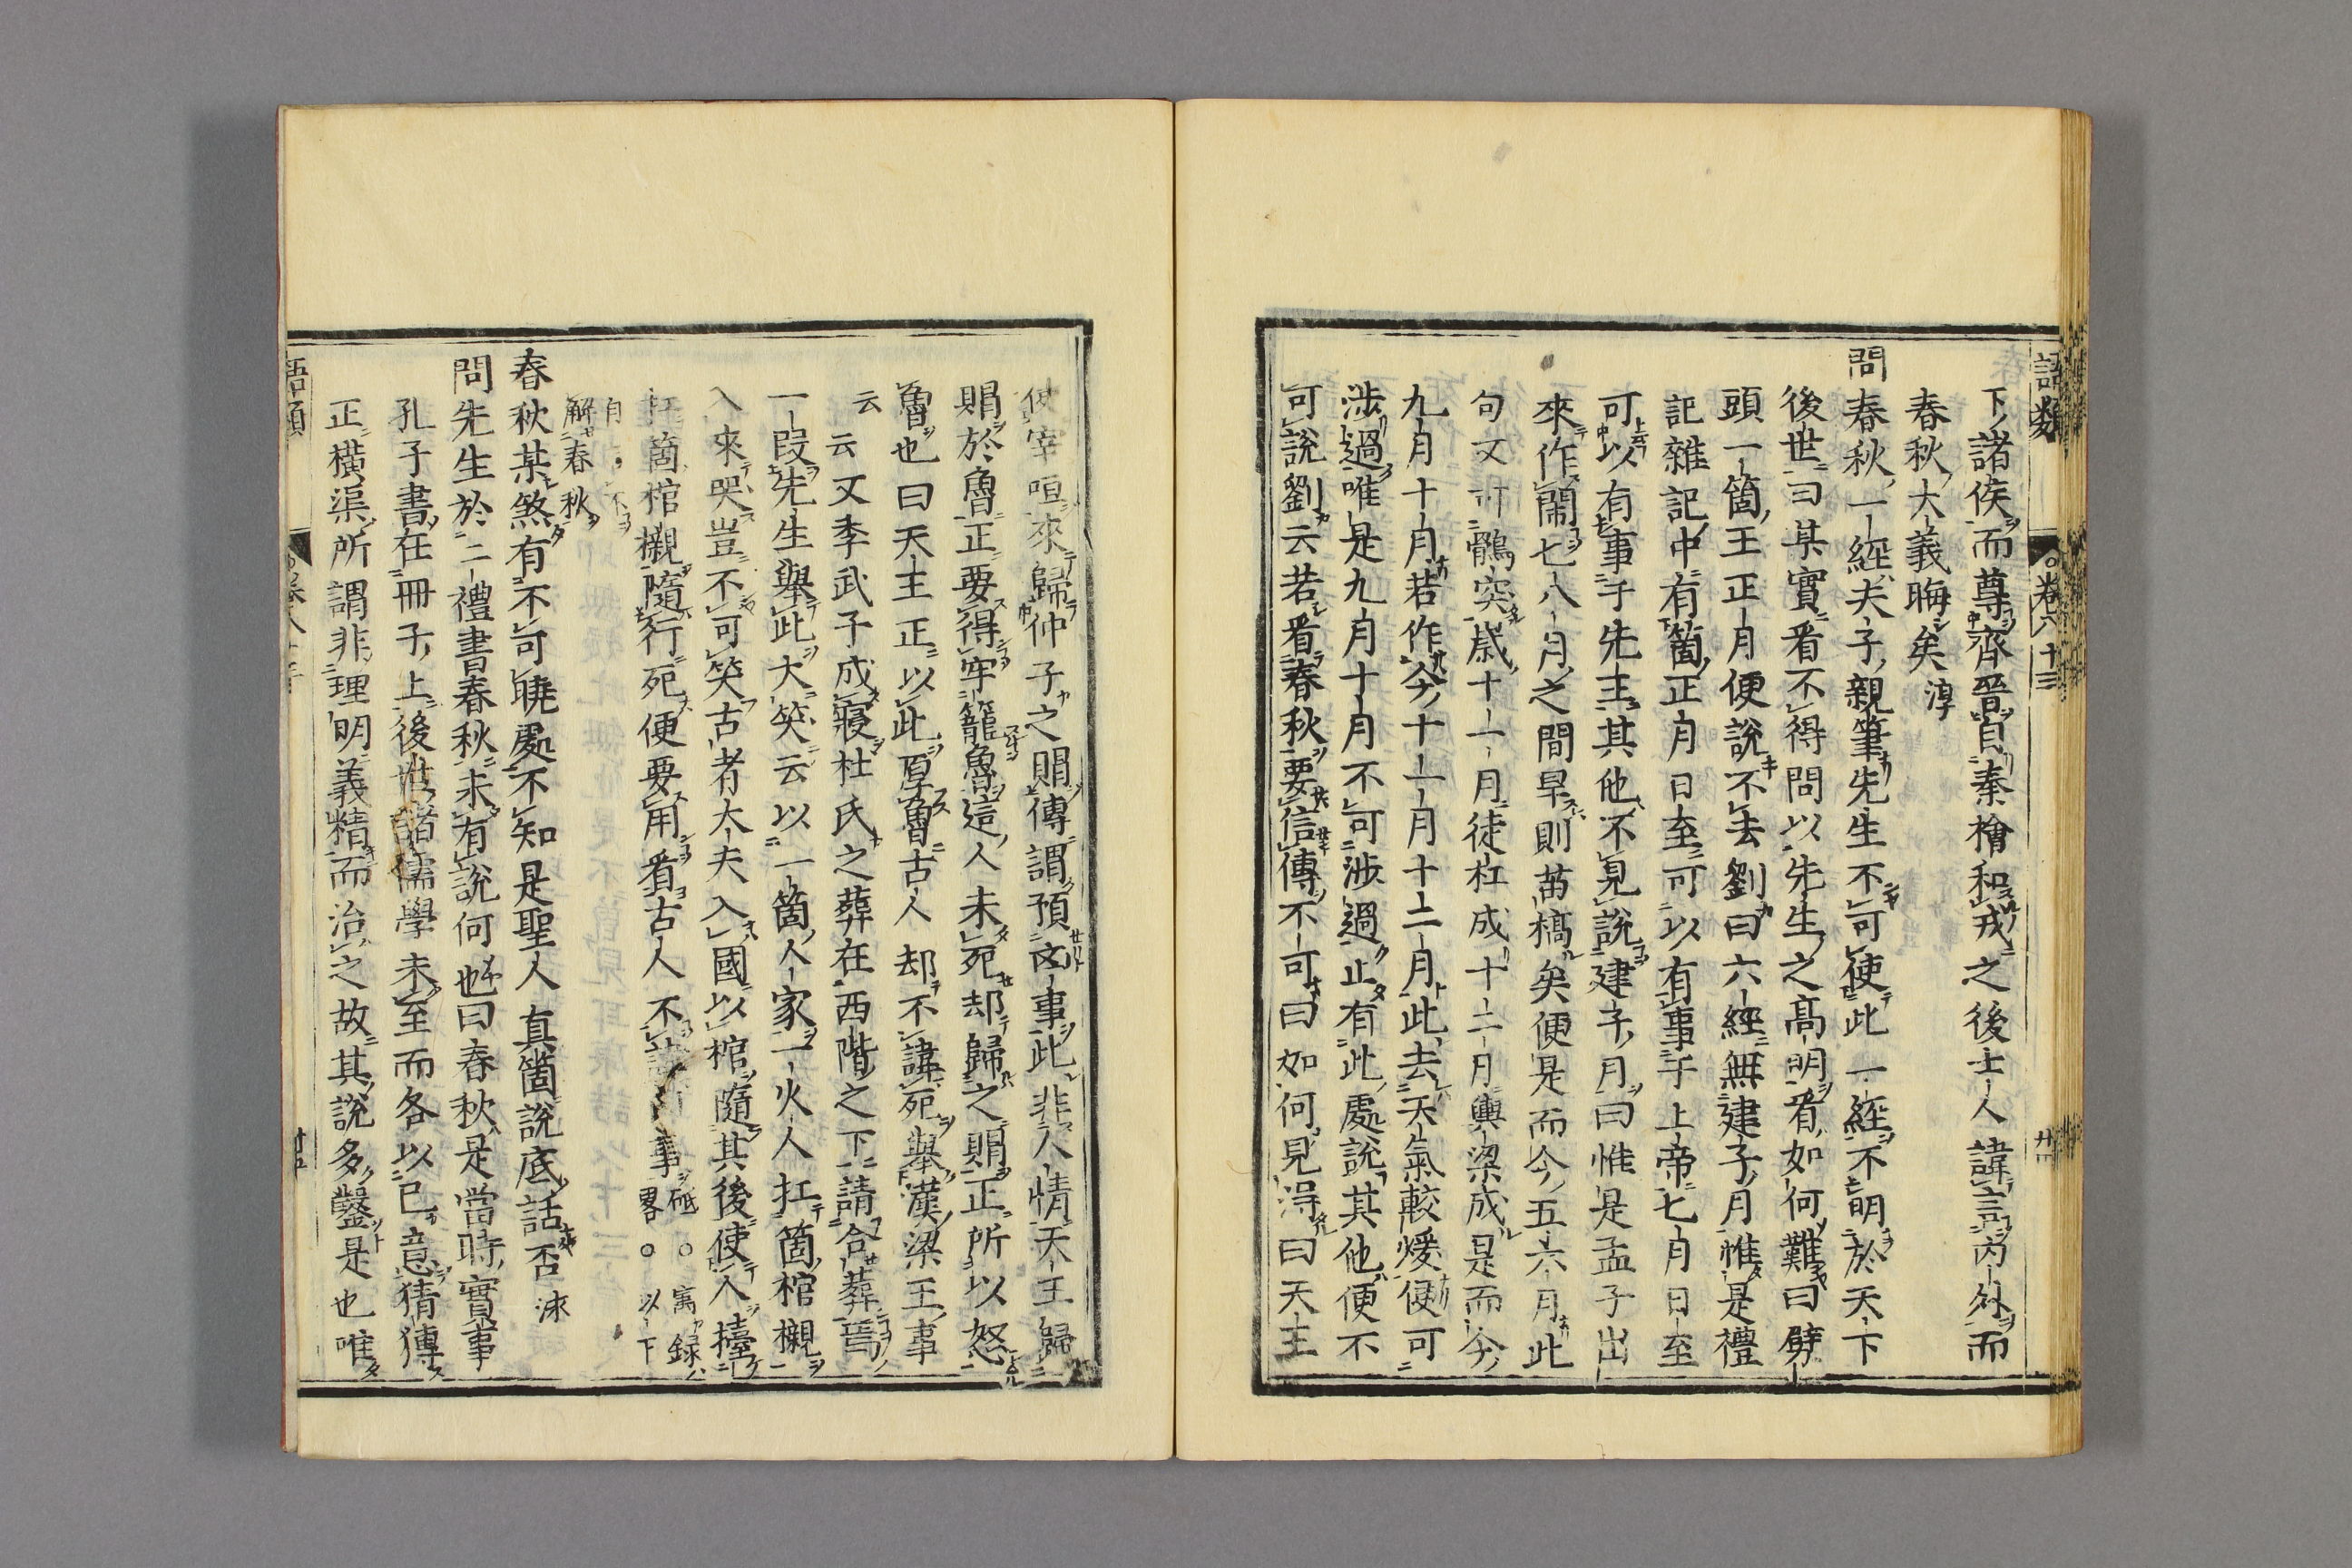 語類 卷八十三
下諸侯而尊齊晉自秦檜和戎之後士人諱言內外而
春秋大義晦矣淳
問春秋一經夫子親筆先生不可使此一經不明於天下
後世曰某實看不得問以先生之高明看如何難曰劈
頭一箇王正月便說不去劉曰六經無建子月惟是禮
記雜記中有箇正月日至可以有事于上帝七月日至
可以有事于先王其他不見說建子月曰惟是孟子出
來作鬧七八月之間旱則苗槁矣便是而今五六月此
句又可鶻突歲十一月徒杠成十二月輿梁成是而今
九月十月若作今十一月十二月此去天氣較煖便可
涉過唯是九月十月不可涉過止有此處說其他便不
可說劉云若看春秋要信傳不可曰如何見得曰天王
使宰咺來歸仲子之賵傳謂預凶事此非人情天王歸
賵於魯正要得牢籠魯這人未死却歸之賵正所以怒
魯也曰天王正以此厚魯古人却不諱死舉漢梁王事
云云又季武子成寢杜氏之葬在西階之下請合葬焉
一段先生舉此大笑云以一箇人家一火人扛箇棺櫬
入來哭豈不可笑古者大夫入國以棺隨其後使人擡
扛箇棺櫬隨行死便要用看古人不 事砥○寓録
畧○以下
自 不
解春秋
春秋某煞有不可曉處不知是聖人真箇說底話否洡
問先生於二禮書春秋未有說何也曰春秋是當時實事
孔子書在冊子上後世諸儒學未至而各以己意猜傳
正橫渠所謂非理明義精而治之故其說多鑿是也唯
語類